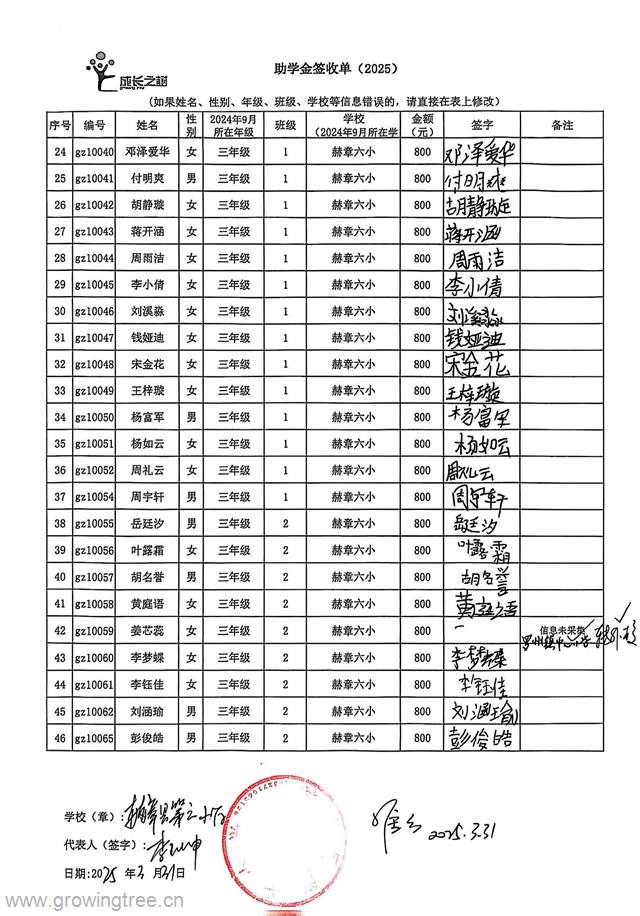 成长之树
助学金签收单（2025）
（如果姓名、性别、年级、班级、学校等信息错误的，请直接在表上修改）
序号 编号 姓名 性别 2024年9月所在年级 班级 学校（2024年9月所在学 金额（元） 签字 备注
24 gz10040 邓泽爱华 女 三年级 1 赫章六小 800 邓泽爱华
25 gz10041 付明爽 男 三年级 1 赫章六小 800 付明爽
26 gz10042 胡静璇 女 三年级 1 赫章六小 800 胡静璇
27 gz10043 蒋开涵 女 三年级 1 赫章六小 800 蒋开涵
28 gz10044 周雨洁 女 三年级 1 赫章六小 800 周雨洁
29 gz10045 李小倩 女 三年级 1 赫章六小 800 李小倩
30 gz10046 刘溪淼 女 三年级 1 赫章六小 800 刘溪淼
31 gz10047 钱娅迪 女 三年级 1 赫章六小 800 钱娅迪
32 gz10048 宋金花 女 三年级 1 赫章六小 800 宋金花
33 gz10049 王梓璇 女 三年级 1 赫章六小 800 王梓璇
34 gz10050 杨富军 男 三年级 1 赫章六小 800 杨富军
35 gz10051 杨如云 女 三年级 1 赫章六小 800 杨如云
36 gz10052 周礼云 女 三年级 1 赫章六小 800 周礼云
37 gz10054 周宇轩 男 三年级 1 赫章六小 800 周宇轩
38 gz10055 岳廷汐 男 三年级 2 赫章六小 800 岳廷汐
39 gz10056 叶露霜 女 三年级 2 赫章六小 800 叶露霜
40 gz10057 胡名誉 男 三年级 2 赫章六小 800 胡名誉
41 gz10058 黄庭语 女 三年级 2 赫章六小 800 黄庭语
42 gz10059 姜芯蕊 女 三年级 2 赫章六小 800 一 信息未采集
43 gz10060 李梦蝶 女 三年级 2 赫章六小 800 李梦蝶
44 gz10061 李钰佳 女 三年级 2 赫章六小 800 李钰佳
45 gz10062 刘涵瑜 男 三年级 2 赫章六小 800 刘涵瑜
46 gz10065 彭俊皓 男 三年级 2 赫章六小 800 彭俊皓
学校（章）：赫章县第六小学
代表人（签字）：
2025.3.31
日期：2025 年 3 月 31 日
www.growingtree.cn